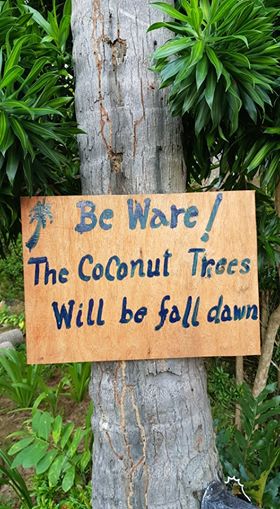 Be Ware!
The CoConut Trees
Will be fall dawn